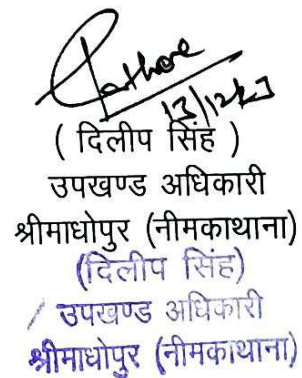 Rathore
13/12/23
( दिलीप सिंह )
उपखण्ड अधिकारी
श्रीमाधोपुर (नीमकाथाना)
(दिलीप सिंह)
उपखण्ड अधिकारी
श्रीमाधोपुर (नीमकाथाना)